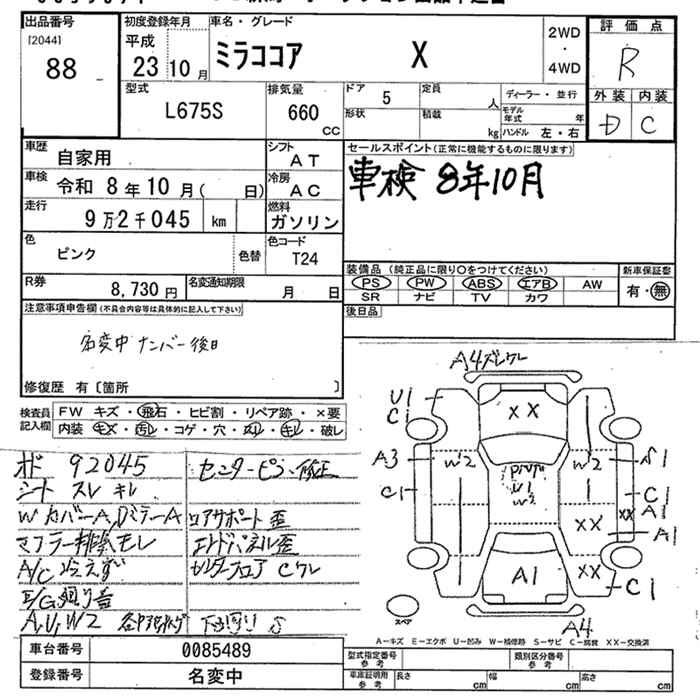 出品番号 初度登録年月 車名・グレード 2WD ・ 4WD 評価点
[2044] 平成 ミラココア X R
88 23 10月
型式 排気量 ドア 5 定員 人 ディーラー・並行 外装 内装
L675S 660 CC 形状 積載 kg モデル年式 年 D C
ハンドル 左・右
車歴 自家用 シフト AT セールスポイント(正常に機能するものに限ります)
車検 令和 8年10月( 日) 冷房 AC 車検 8年10月
走行 9万2千045 km 燃料 ガソリン
色 ピンク 色替 色コード T24
装備品 (純正品に限り○をつけてください) 新車保証書
PS PW ABS エアB AW 有・無
SR ナビ TV カワ
R券 8,730円 名変通知期限 月 日
後日品
注意事項申告欄(不具合内容等は具体的に記入して下さい)
名変中 ナンバー後日
修復歴 有〔箇所 〕
検査員記入欄 FW キズ・飛石・ヒビ割・リペア跡・×要
内装・キズ・汚レ・コゲ・穴・スレ・キレ・破レ
オド 92045
シート スレ キレ
Wカバー A, DミラーA
マフラー排気モレ
A/C 冷えず
E/G廻り音
A,U,W2 下廻りS
センターピラー修正
コアサポート歪
エンドパネル歪
センターフロア Cワレ
A4ズレワレ
U1
C1
XX
A3
W2
W2
S1
C1
U1
W2
C1
XX
A1
XX
A1
A1
XX
C1
A4
スペア
A―キズ E―エクボ U―凹み W―補修跡 S―サビ C―腐食 XX―交換済
車台番号 0085489
登録番号 名変中
型式指定番号 参考 類別区分番号 参考
車庫証明 参考 長さ cm 幅 cm 高さ cm